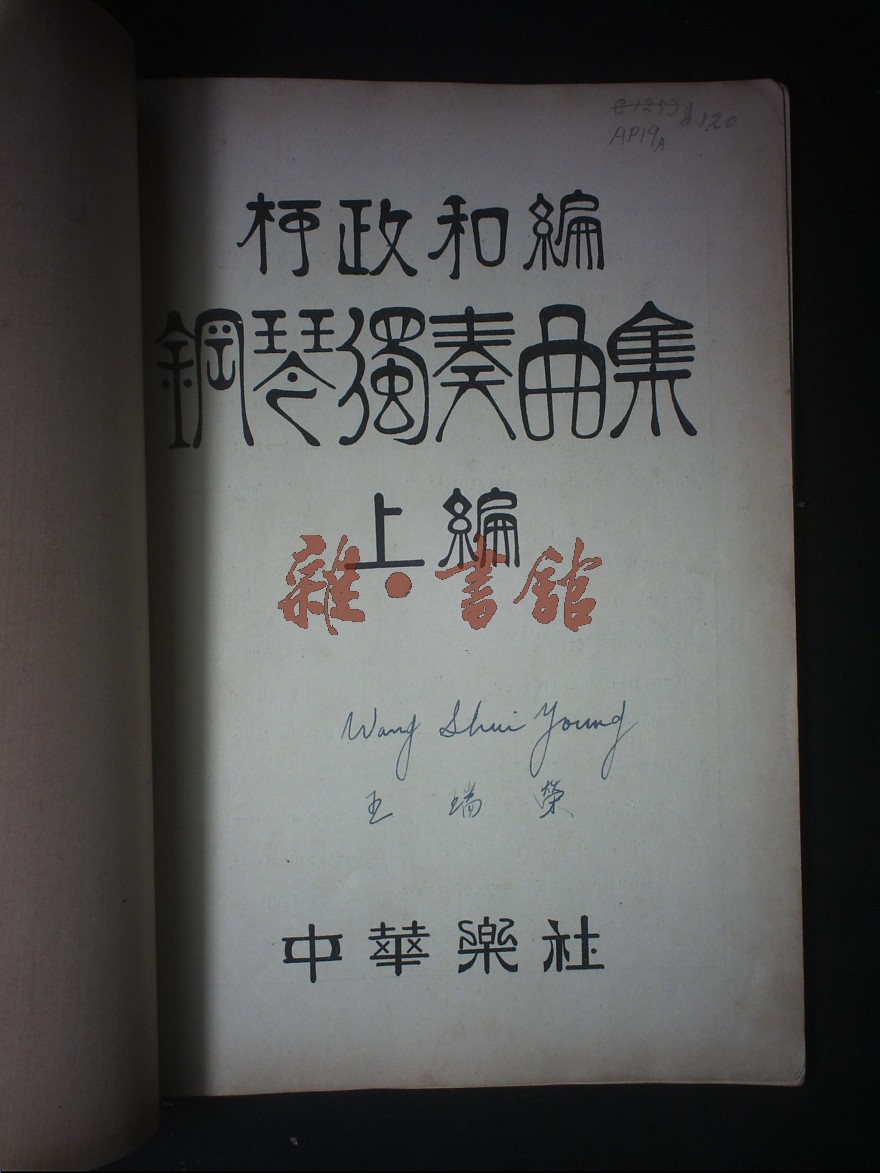 C1253 A120
AP19A
柯政和編
鋼琴獨奏曲集
上編
雜·書館
Wang Shui Young
王 瑞 榮
中華樂社